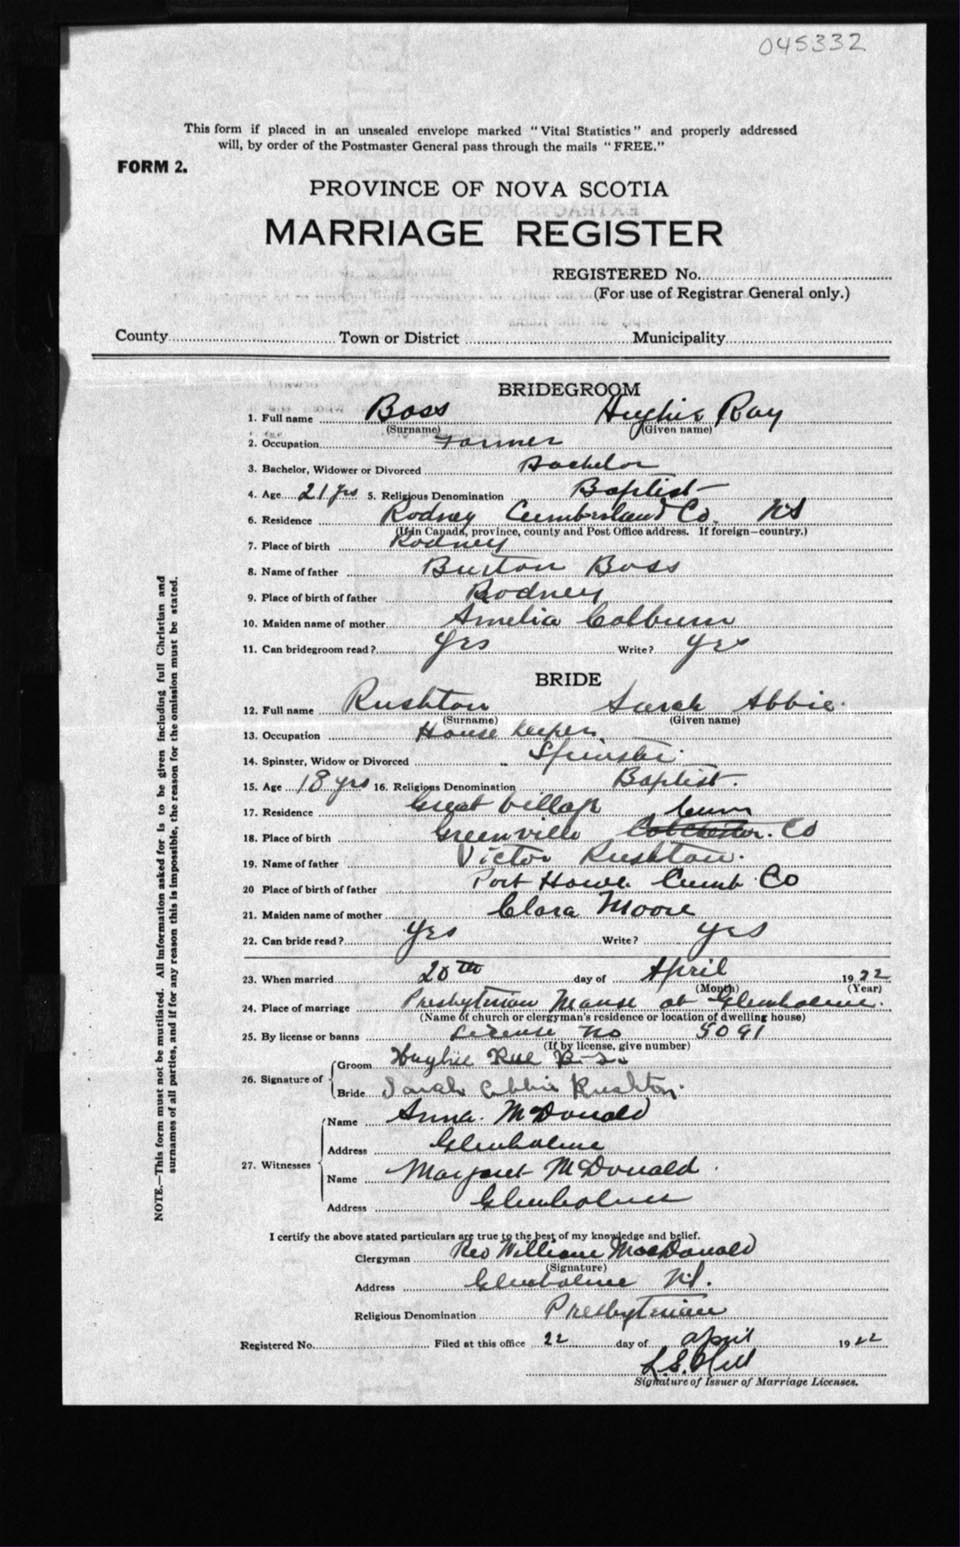 045332
This form if placed in an unsealed envelope marked "Vital Statistics" and properly addressed
will, by order of the Postmaster General pass through the mails "FREE."
FORM 2.
PROVINCE OF NOVA SCOTIA
MARRIAGE REGISTER
REGISTERED No.
(For use of Registrar General only.)
County Town or District Municipality
NOTE.—This form must not be mutilated. All information asked for is to be given including full Christian and
surnames of all parties, and if for any reason this is impossible, the reason for the omission must be stated.
BRIDEGROOM
1. Full name Boss Hughie Ray
(Surname) (Given name)
2. Occupation Farmer
3. Bachelor, Widower or Divorced Bachelor
4. Age 21 yrs 5. Religious Denomination Baptist
6. Residence Rodney Cumberland Co. NS
(If in Canada, province, county and Post Office address. If foreign—country.)
7. Place of birth Rodney
8. Name of father Burton Boss
9. Place of birth of father Rodney
10. Maiden name of mother Amelia Colburn
11. Can bridegroom read? Yes Write? Yes
BRIDE
12. Full name Rushton Sarah Abbie.
(Surname) (Given name)
13. Occupation House keeper
14. Spinster, Widow or Divorced Spinster
15. Age 18 yrs 16. Religious Denomination Baptist.
17. Residence Great Village
18. Place of birth Greenville Cum Colchester Co
19. Name of father Victor Rushton.
20 Place of birth of father Port Howe Cumb Co
21. Maiden name of mother Clara Moore
22. Can bride read? Yes Write? Yes
23. When married 20th day of April 1922
(Month) (Year)
24. Place of marriage Presbyterian Manse at Glenholme.
(Name of church or clergyman's residence or location of dwelling house)
25. By license or banns License No 5091
(If by license, give number)
26. Signature of Groom Hughie Rae
Bride Sarah Abbie Rushton.
27. Witnesses
Name Anna McDonald
Address Glenholme
Name Margaret McDonald.
Address Glenholme
I certify the above stated particulars are true to the best of my knowledge and belief.
Clergyman Rev William MacDonald
(Signature)
Address Glenholme N.S.
Religious Denomination Presbyterian
Registered No. Filed at this office 22 day of April 1922
L.S. Hill
Signature of Issuer of Marriage Licenses.